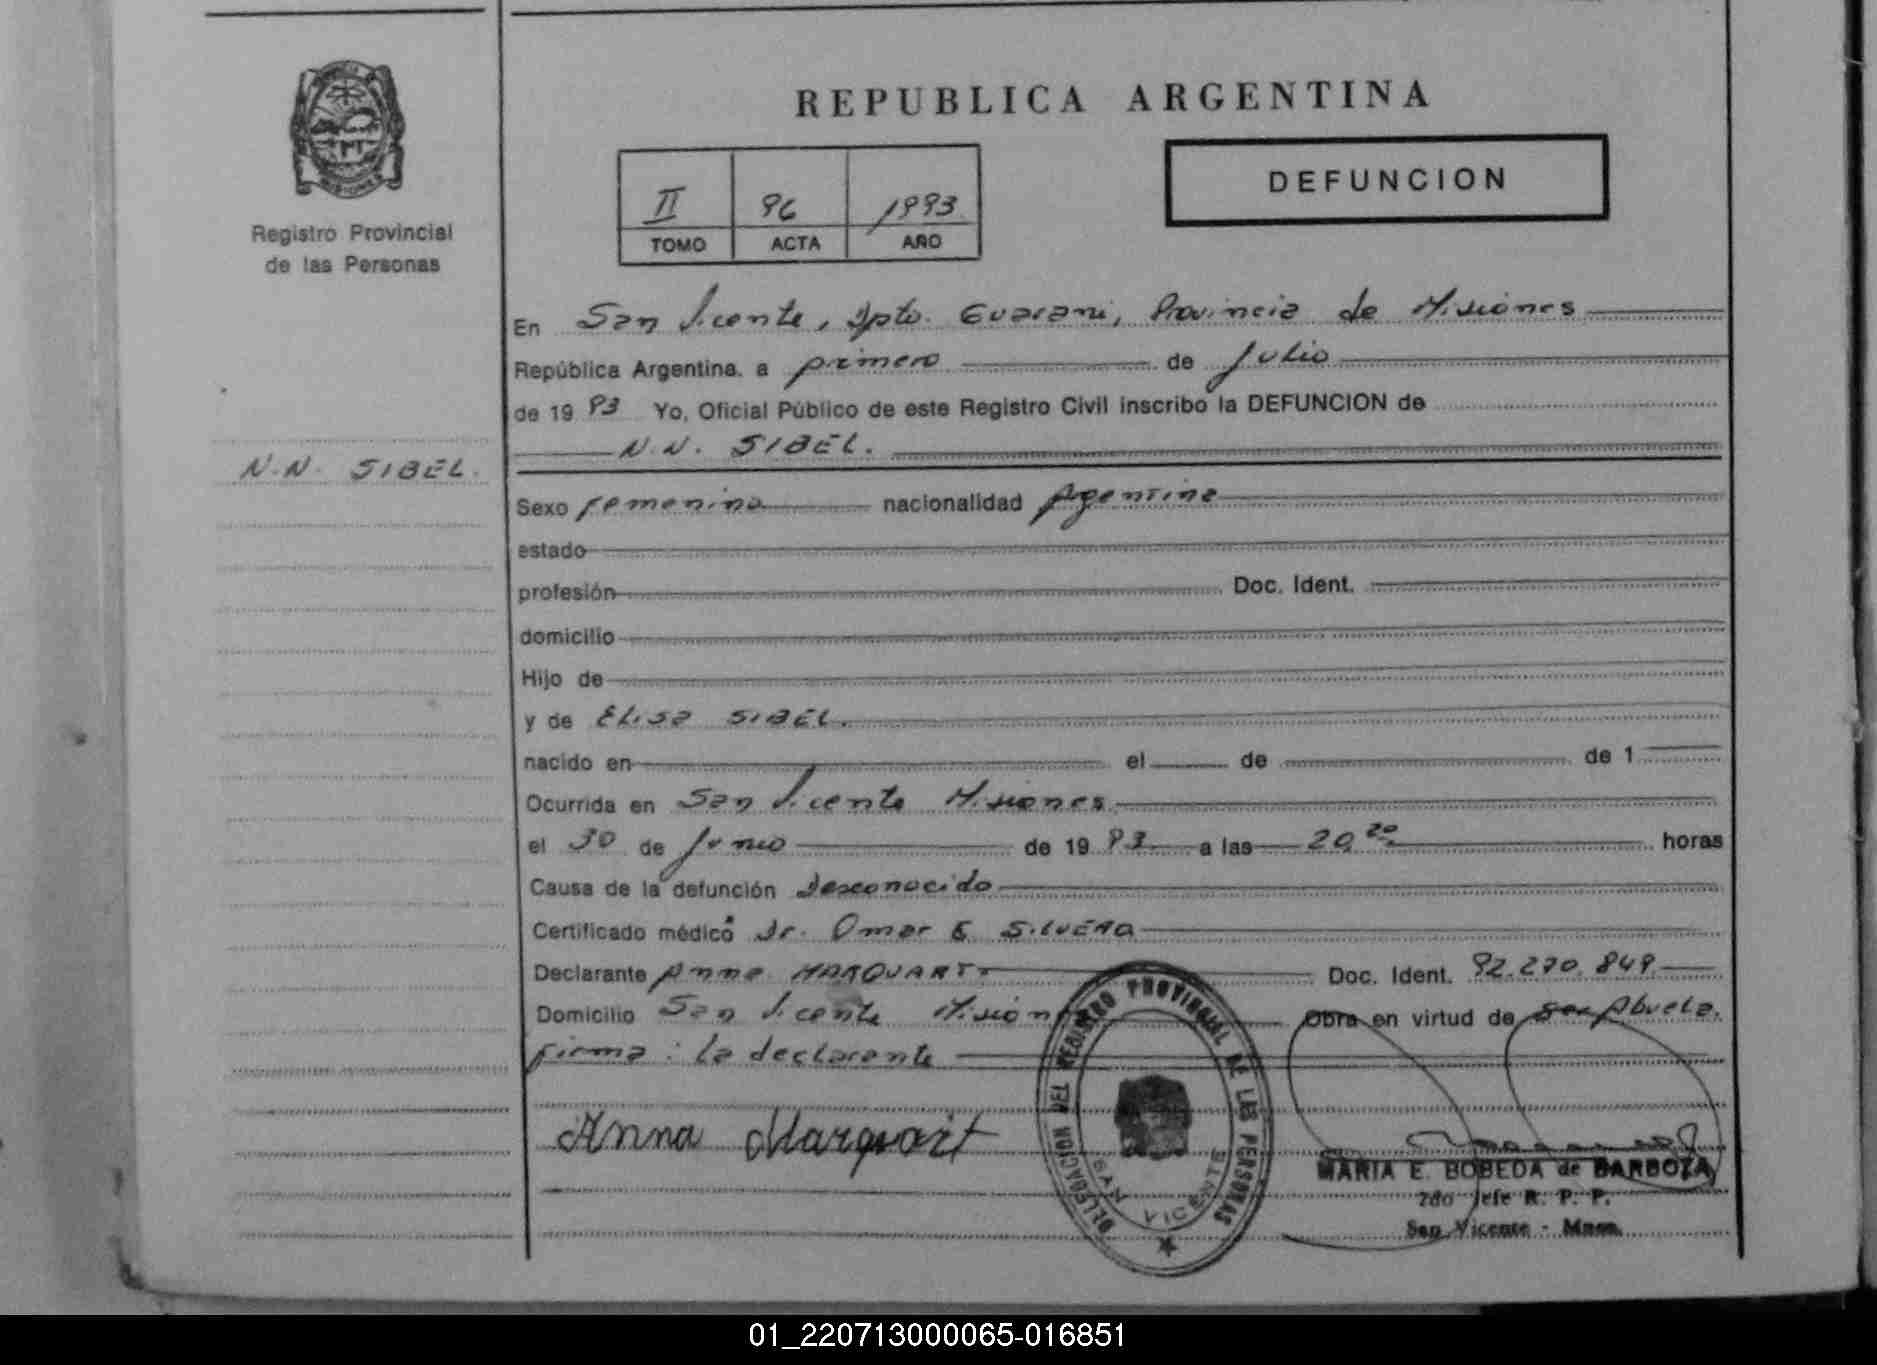 REPUBLICA ARGENTINA
DEFUNCION
II 96 1993
TOMO ACTA AÑO
Registro Provincial
de las Personas
N.N. SIBEL.
En San Vicente, Dpto. Guarani, Provincia de Misiones
República Argentina, a primero de Julio
de 19 93 Yo, Oficial Público de este Registro Civil inscribo la DEFUNCION de
N.N. SIBEL.
Sexo femenino nacionalidad Argentina
estado
profesión Doc. Ident.
domicilio
Hijo de
y de Elisa SIBEL.
nacido en el de de 1
Ocurrida en San Vicente Misiones
el 30 de Junio de 19 93 a las 20,20 horas
Causa de la defunción Desconocido
Certificado médico Dr. Omar E SILVERA
Declarante Anna MARQUART. Doc. Ident. 92.270.849
Domicilio San Vicente Misiones Obra en virtud de ser Abuela.
firma: la declarante
Anna Marquart
DELEGACION DEL REGISTRO PROVINCIAL DE LAS PERSONAS
SAN VICENTE
MARIA E. BOBEDA de BARBOZA
2do Jefe R. P. P.
San Vicente - Mnes.
01_220713000065-016851